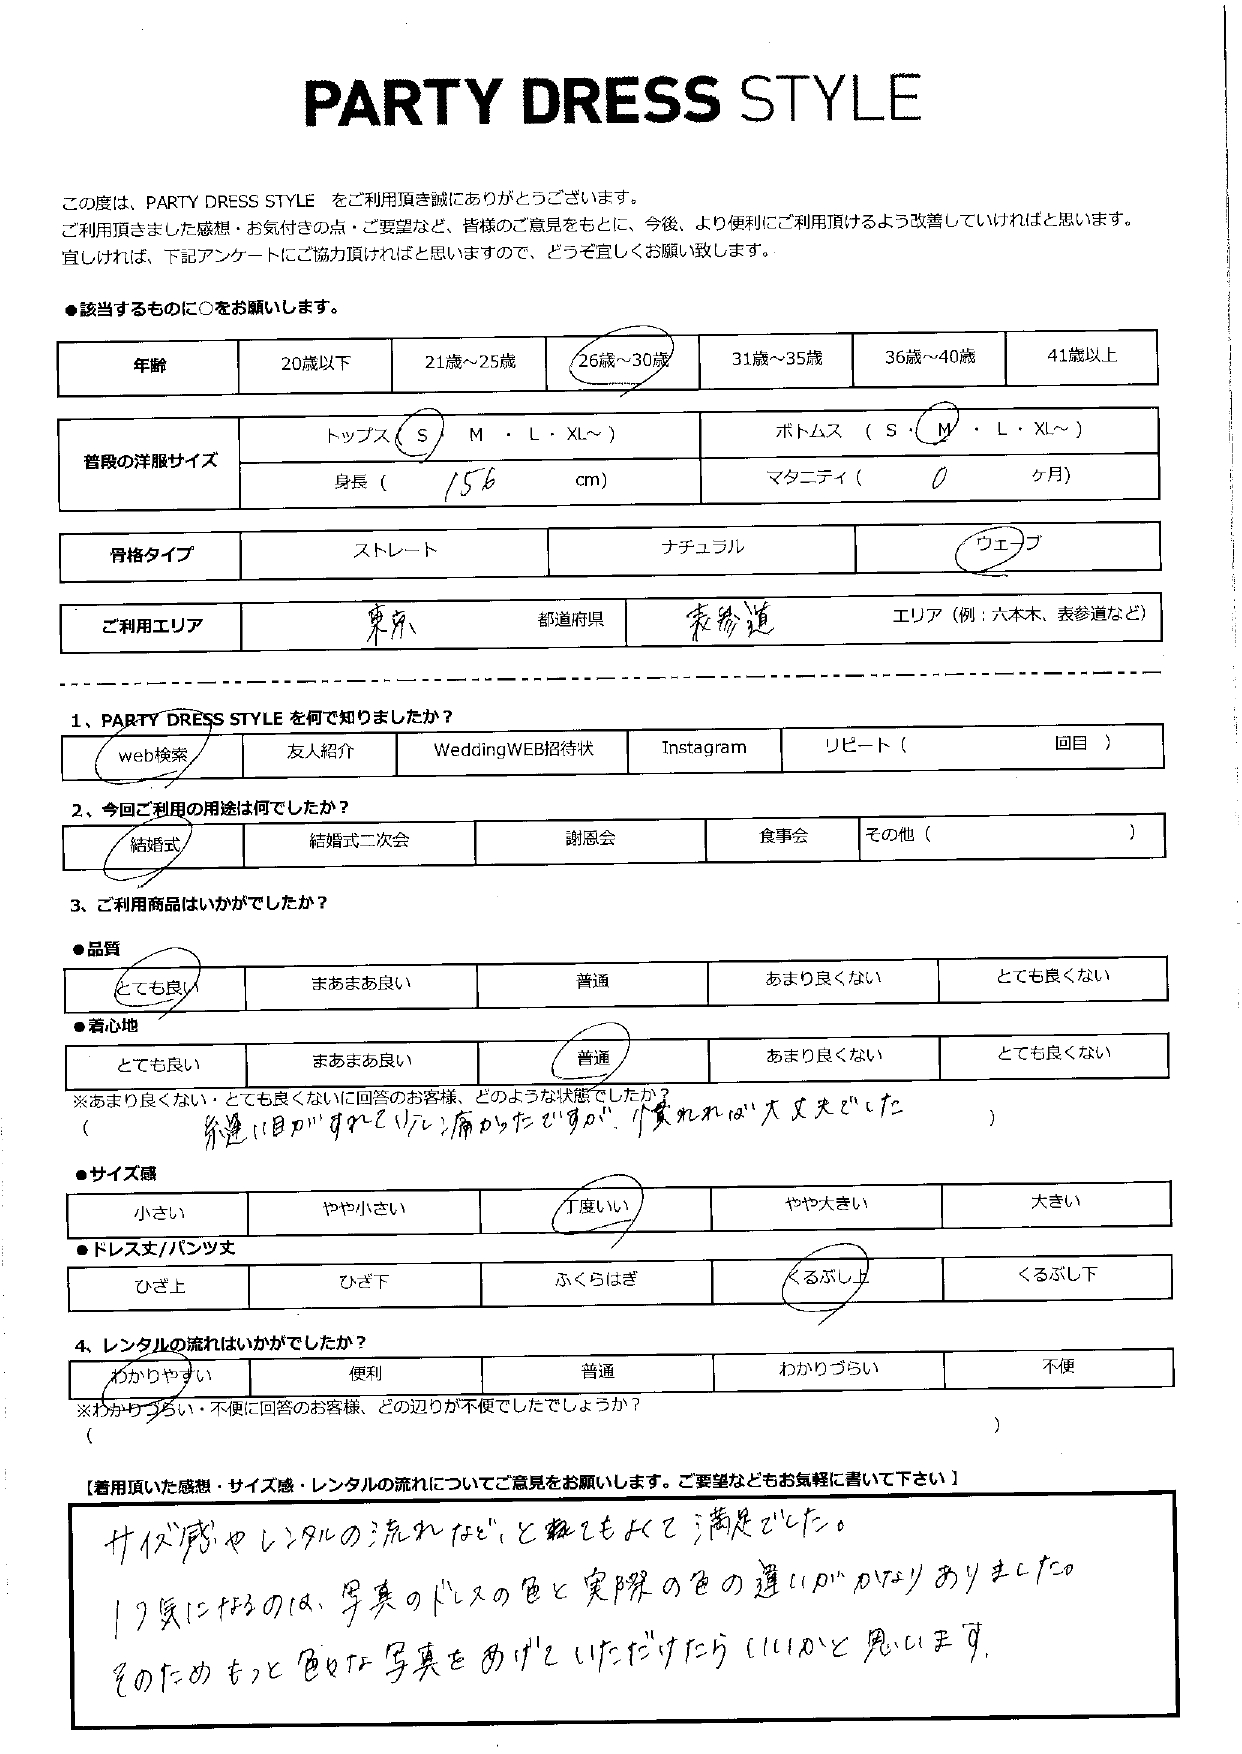 PARTY DRESS STYLE
この度は、PARTY DRESS STYLE をご利用頂き誠にありがとうございます。
ご利用頂きました感想・お気付きの点・ご要望など、皆様のご意見をもとに、今後、より便利にご利用頂けるよう改善していければと思います。
宜しければ、下記アンケートにご協力頂ければと思いますので、どうぞ宜しくお願い致します。
●該当するものに○をお願いします。
年齢 20歳以下 21歳～25歳 26歳～30歳 31歳～35歳 36歳～40歳 41歳以上
普段の洋服サイズ トップス ( S ・ M ・ L ・ XL～ ) ボトムス ( S ・ M ・ L ・ XL～ )
身長 ( 156 cm) マタニティ ( 0 ヶ月)
骨格タイプ ストレート ナチュラル ウェーブ
ご利用エリア 東京 都道府県 表参道 エリア（例：六本木、表参道など）
1、PARTY DRESS STYLE を何で知りましたか？
web検索 友人紹介 WeddingWEB招待状 Instagram リピート ( 回目 )
2、今回ご利用の用途は何でしたか？
結婚式 結婚式二次会 謝恩会 食事会 その他 ( )
3、ご利用商品はいかがでしたか？
●品質
とても良い まあまあ良い 普通 あまり良くない とても良くない
●着心地
とても良い まあまあ良い 普通 あまり良くない とても良くない
※あまり良くない・とても良くないに回答のお客様、どのような状態でしたか？
( 縫い目がすれて 痛かったですが、慣れれば大丈夫でした )
●サイズ感
小さい やや小さい 丁度いい やや大きい 大きい
●ドレス丈/パンツ丈
ひざ上 ひざ下 ふくらはぎ くるぶし上 くるぶし下
4、レンタルの流れはいかがでしたか？
わかりやすい 便利 普通 わかりづらい 不便
※わかりづらい・不便に回答のお客様、どの辺りが不便でしたでしょうか？
( )
【着用頂いた感想・サイズ感・レンタルの流れについてご意見をお願いします。ご要望などもお気軽に書いて下さい】
サイズ感やレンタルの流れなど、とてもよくて満足でした。
1つ気になるのは、写真のドレスの色と実際の色の違いがかなりありました。
そのためもっと色々な写真をあげていただけたらいいかと思います。